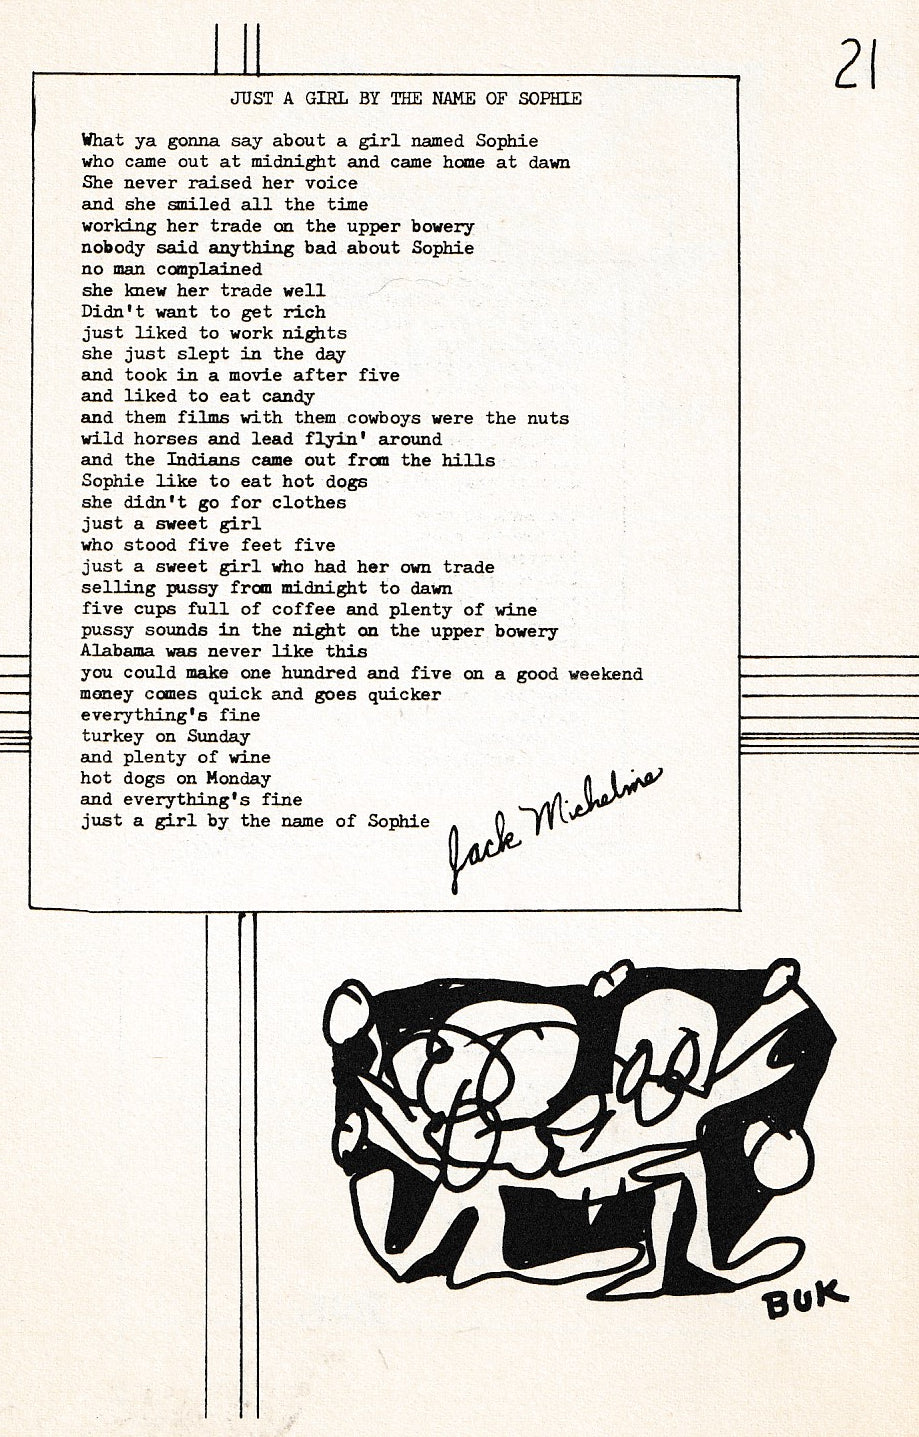 21
JUST A GIRL BY THE NAME OF SOPHIE
What ya gonna say about a girl named Sophie
who came out at midnight and came home at dawn
She never raised her voice
and she smiled all the time
working her trade on the upper bowery
nobody said anything bad about Sophie
no man complained
she knew her trade well
Didn't want to get rich
just liked to work nights
she just slept in the day
and took in a movie after five
and liked to eat candy
and them films with them cowboys were the nuts
wild horses and lead flyin' around
and the Indians came out from the hills
Sophie like to eat hot dogs
she didn't go for clothes
just a sweet girl
who stood five feet five
just a sweet girl who had her own trade
selling pussy from midnight to dawn
five cups full of coffee and plenty of wine
pussy sounds in the night on the upper bowery
Alabama was never like this
you could make one hundred and five on a good weekend
money comes quick and goes quicker
everything's fine
turkey on Sunday
and plenty of wine
hot dogs on Monday
and everything's fine
just a girl by the name of Sophie
Jack Micheline
BUK